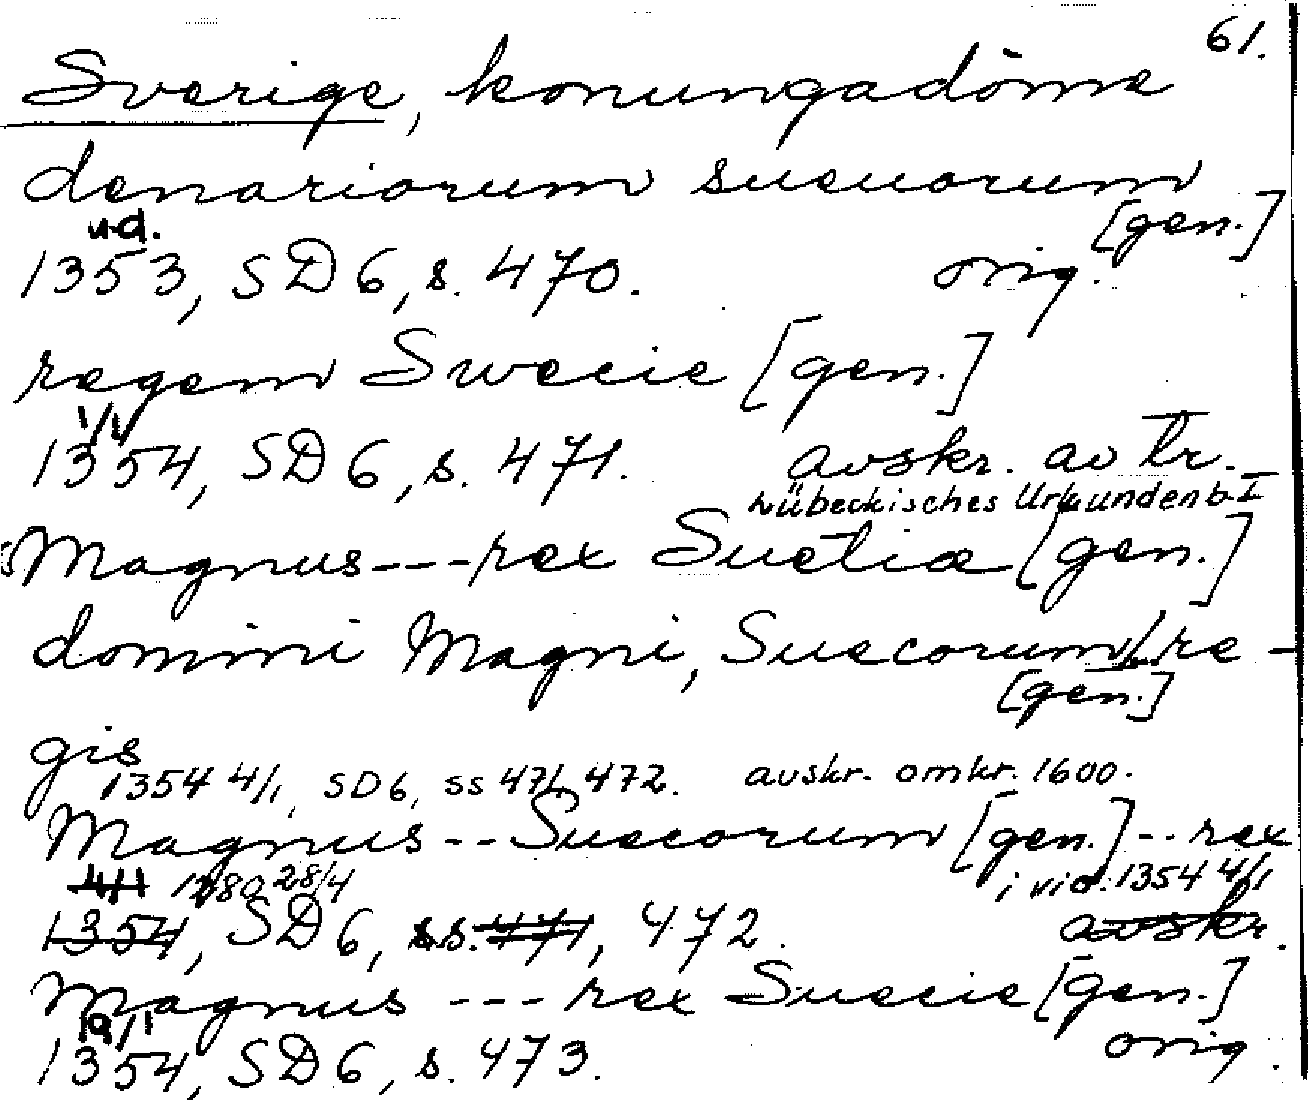 61.
Sverige, konungadöme
denariorum sueuorum
[gen.]
u.d.
1353, SD 6, s. 470. orig.
regem Swecie [gen.]
1/1
1354, SD 6, s. 471. avskr. av tr.
Lübeckisches Urkundenb. I
Magnus---rex Suetiæ [gen.]
domini Magni, Suecorum re-
[gen.]
gis
1354 4/1, SD 6, ss 471, 472. avskr. omkr. 1600.
Magnus -- Suecorum [gen.] -- rex
4/1 1280 28/4 i vid. 1354 4/1
1354, SD 6, ss. 471, 472. avskr.
Magnus --- rex Suecie [gen.]
19/1
1354, SD 6, s. 473. orig.